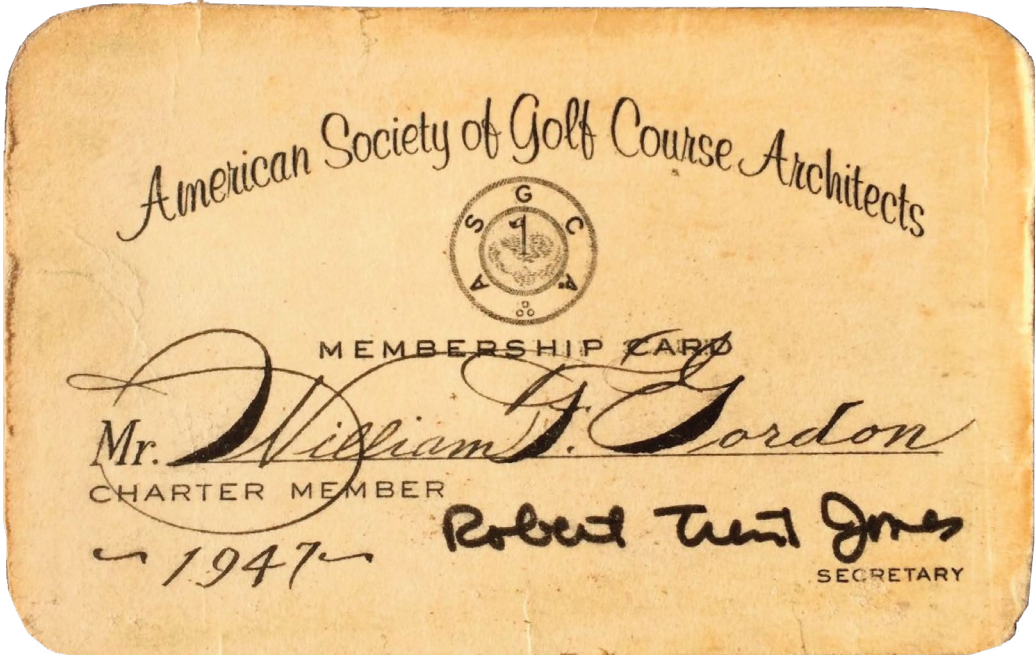 American Society of Golf Course Architects
A S G C A
MEMBERSHIP CARD
Mr. William F. Gordon
CHARTER MEMBER
~ 1947 ~
Robert Trent Jones
SECRETARY